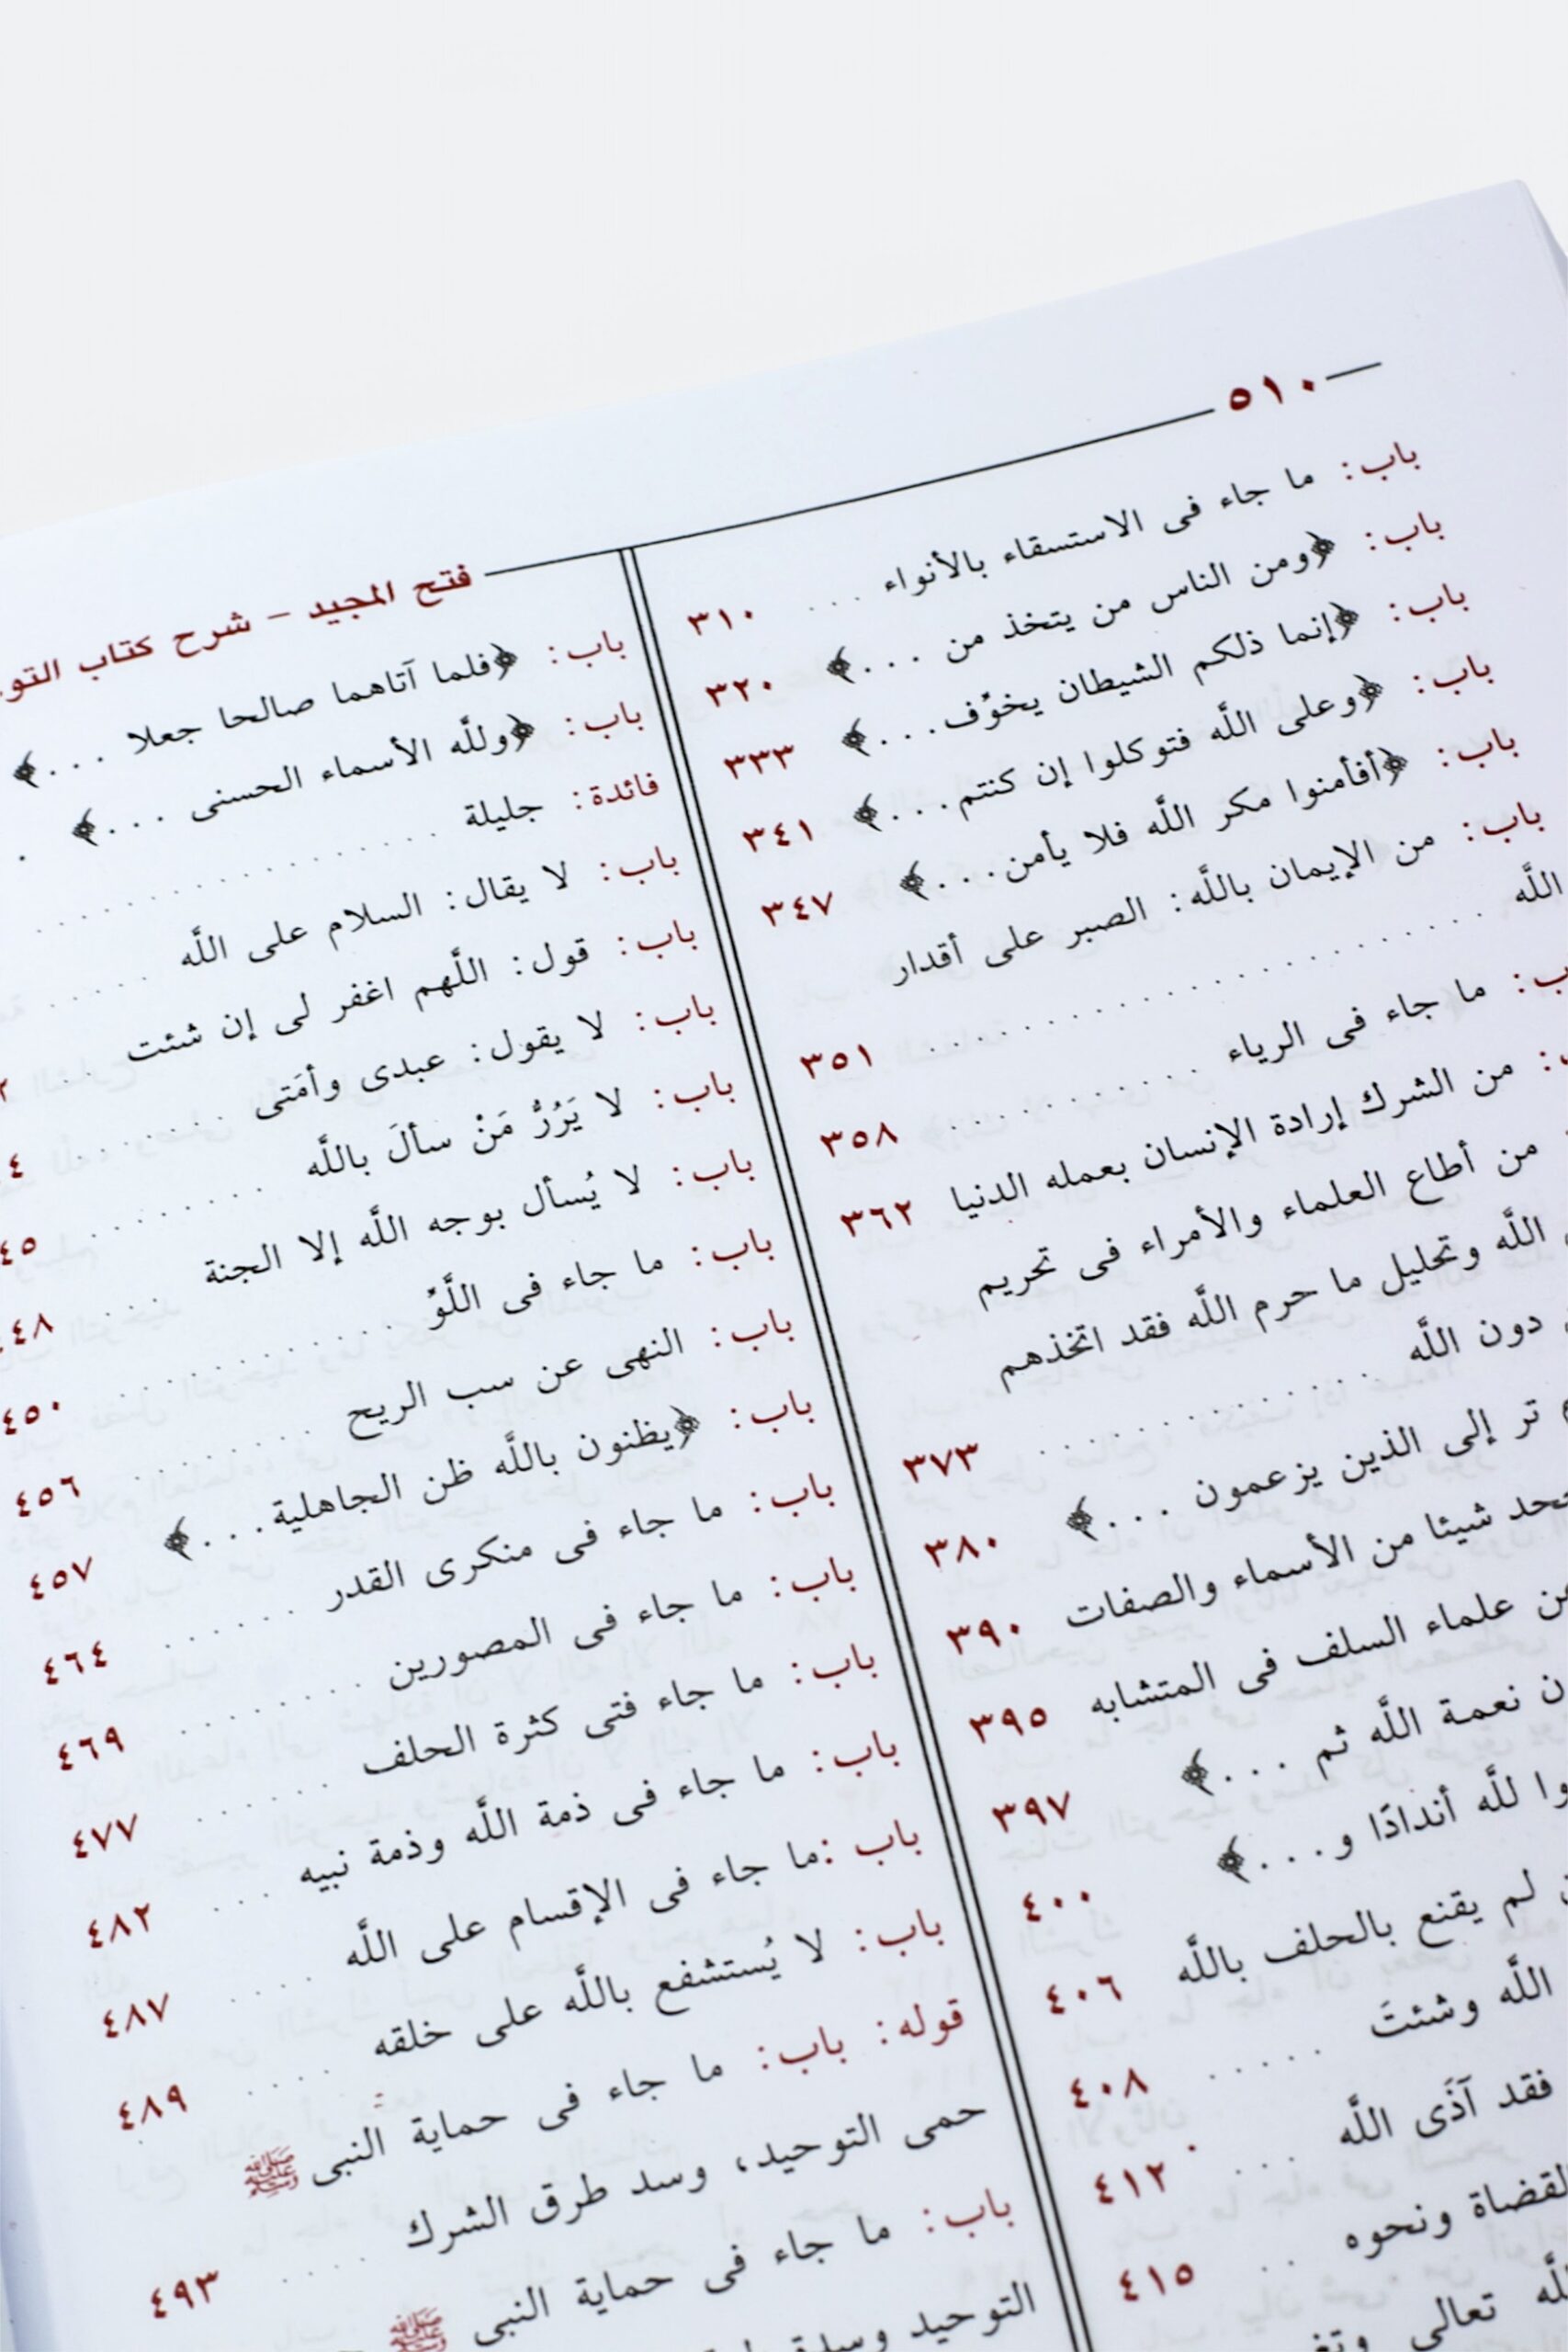 ٥١٠
فتح المجيد - شرح كتاب
باب: ما جاء فى الاستسقاء بالأنواء . . . ٣١٠
باب: ﴿ومن الناس من يتخذ من . . .﴾ ٣٢٠
باب: ﴿إنما ذلكم الشيطان يخوِّف. . .﴾ ٣٣٣
باب: ﴿وعلى اللَّه فتوكلوا إن كنتم. . .﴾ ٣٤١
باب: ﴿أفأمنوا مكر اللَّه فلا يأمن. . .﴾ ٣٤٧
باب: من الإيمان باللَّه: الصبر على أقدار
اللَّه . . . . . . . . . . . . . . . . . . . . ٣٥١
: ما جاء فى الرياء . . . . . . . . . . ٣٥٨
: من الشرك إرادة الإنسان بعمله الدنيا ٣٦٢
من أطاع العلماء والأمراء فى تحريم
اللَّه وتحليل ما حرم اللَّه فقد اتخذهم
دون اللَّه . . . . . . . . . . . . . ٣٧٣
تر إلى الذين يزعمون . . .﴾ ٣٨٠
شيئا من الأسماء والصفات ٣٩٠
علماء السلف فى المتشابه ٣٩٥
نعمة اللَّه ثم . . .﴾ ٣٩٧
للَّه أندادًا و. . .﴾ ٤٠٠
لم يقنع بالحلف باللَّه ٤٠٦
اللَّه وشئتَ . . . . . ٤٠٨
فقد آذَى اللَّه . . . . ٤١٢
ونحوه . . ٤١٥
تعالى
باب: ﴿فلما آتاهما صالحا جعلا . . .﴾
باب: ﴿وللَّه الأسماء الحسنى . . .﴾ .
فائدة: جليلة . . . . . . . . . . . . . . . .
باب: لا يقال: السلام على اللَّه . . . . . .
باب: قول: اللَّهم اغفر لى إن شئت . .
باب: لا يقول: عبدى وأمَتى . . . . . . .
باب: لا يَرُدُّ مَنْ سألَ باللَّه . . . . . . . .
باب: لا يُسأل بوجه اللَّه إلا الجنة . . . .
باب: ما جاء فى اللَّوّ . . . . . . . . . . . . ٤٥٠
باب: النهى عن سب الريح . . . . . . . . ٤٥٦
باب: ﴿يظنون باللَّه ظن الجاهلية. . .﴾ ٤٥٧
باب: ما جاء فى منكرى القدر . . . . . . ٤٦٤
باب: ما جاء فى المصورين . . . . . . . . ٤٦٩
باب: ما جاء فتى كثرة الحلف . . . . . . ٤٧٧
باب: ما جاء فى ذمة اللَّه وذمة نبيه . . . ٤٨٢
باب :ما جاء فى الإقسام على اللَّه . . . . ٤٨٧
باب: لا يُستشفع باللَّه على خلقه . . . . ٤٨٩
قوله: باب: ما جاء فى حماية النبى ﷺ
حمى التوحيد، وسد طرق الشرك . . . . ٤٩٣
باب: ما جاء فى حماية النبى ﷺ
التوحيد